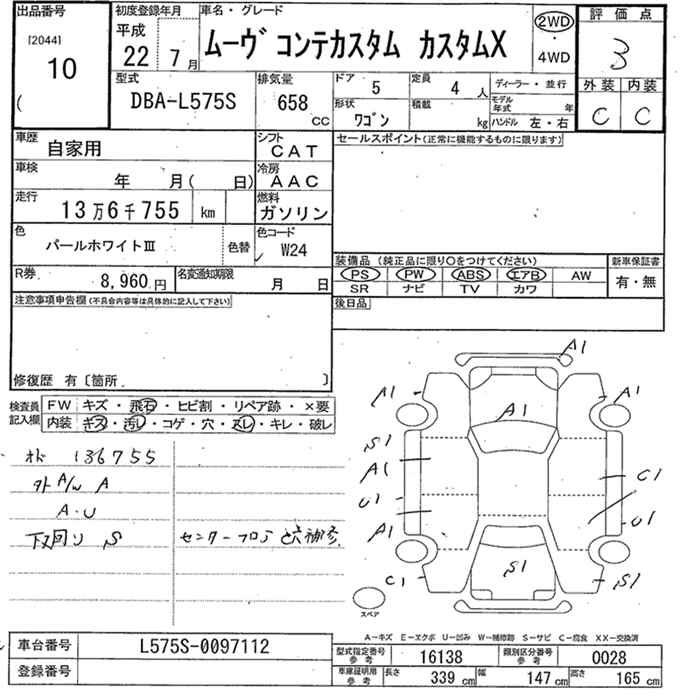 出品番号
[2044]
10
(
初度登録年月
平成
22 7月
車名・グレード
ムーヴ コンテカスタム カスタムX
2WD
・
4WD
評価点
3
外装 内装
C C
型式
DBA-L575S
排気量
658 CC
ドア 5
定員 4 人
形状 ワゴン
積載 kg
ディーラー・並行
モデル年式 年
ハンドル 左・右
車歴 自家用
シフト CAT
車検 年 月( 日)
冷房 AAC
走行 13万6千755 km
燃料 ガソリン
色 パールホワイトⅢ 色替
色コード W24
R券 8,960円
名変通知期限 月 日
セールスポイント(正常に機能するものに限ります)
装備品 (純正品に限り○をつけてください)
PS PW ABS エアB AW
SR ナビ TV カワ
新車保証書
有・無
後日品
注意事項申告欄(不具合内容等は具体的に記入して下さい)
修復歴 有〔箇所 〕
検査員記入欄
FW キズ・飛石・ヒビ割・リペア跡・×要
内装 キズ・汚レ・コゲ・穴・スレ・キレ・破レ
136755
外A/W A
A・U
下回り S
センターフロア 補修
A1
A1
A1
A1
S1
A1
U1
A1
C1
C1
U1
S1
S1
スペア
A－キズ E－エクボ U－凹み W－補修跡 S－サビ C－腐食 XX－交換済
車台番号 L575S-0097112
登録番号
型式指定番号参考 16138
類別区分番号参考 0028
車庫証明用参考 長さ 339 cm 幅 147 cm 高さ 165 cm